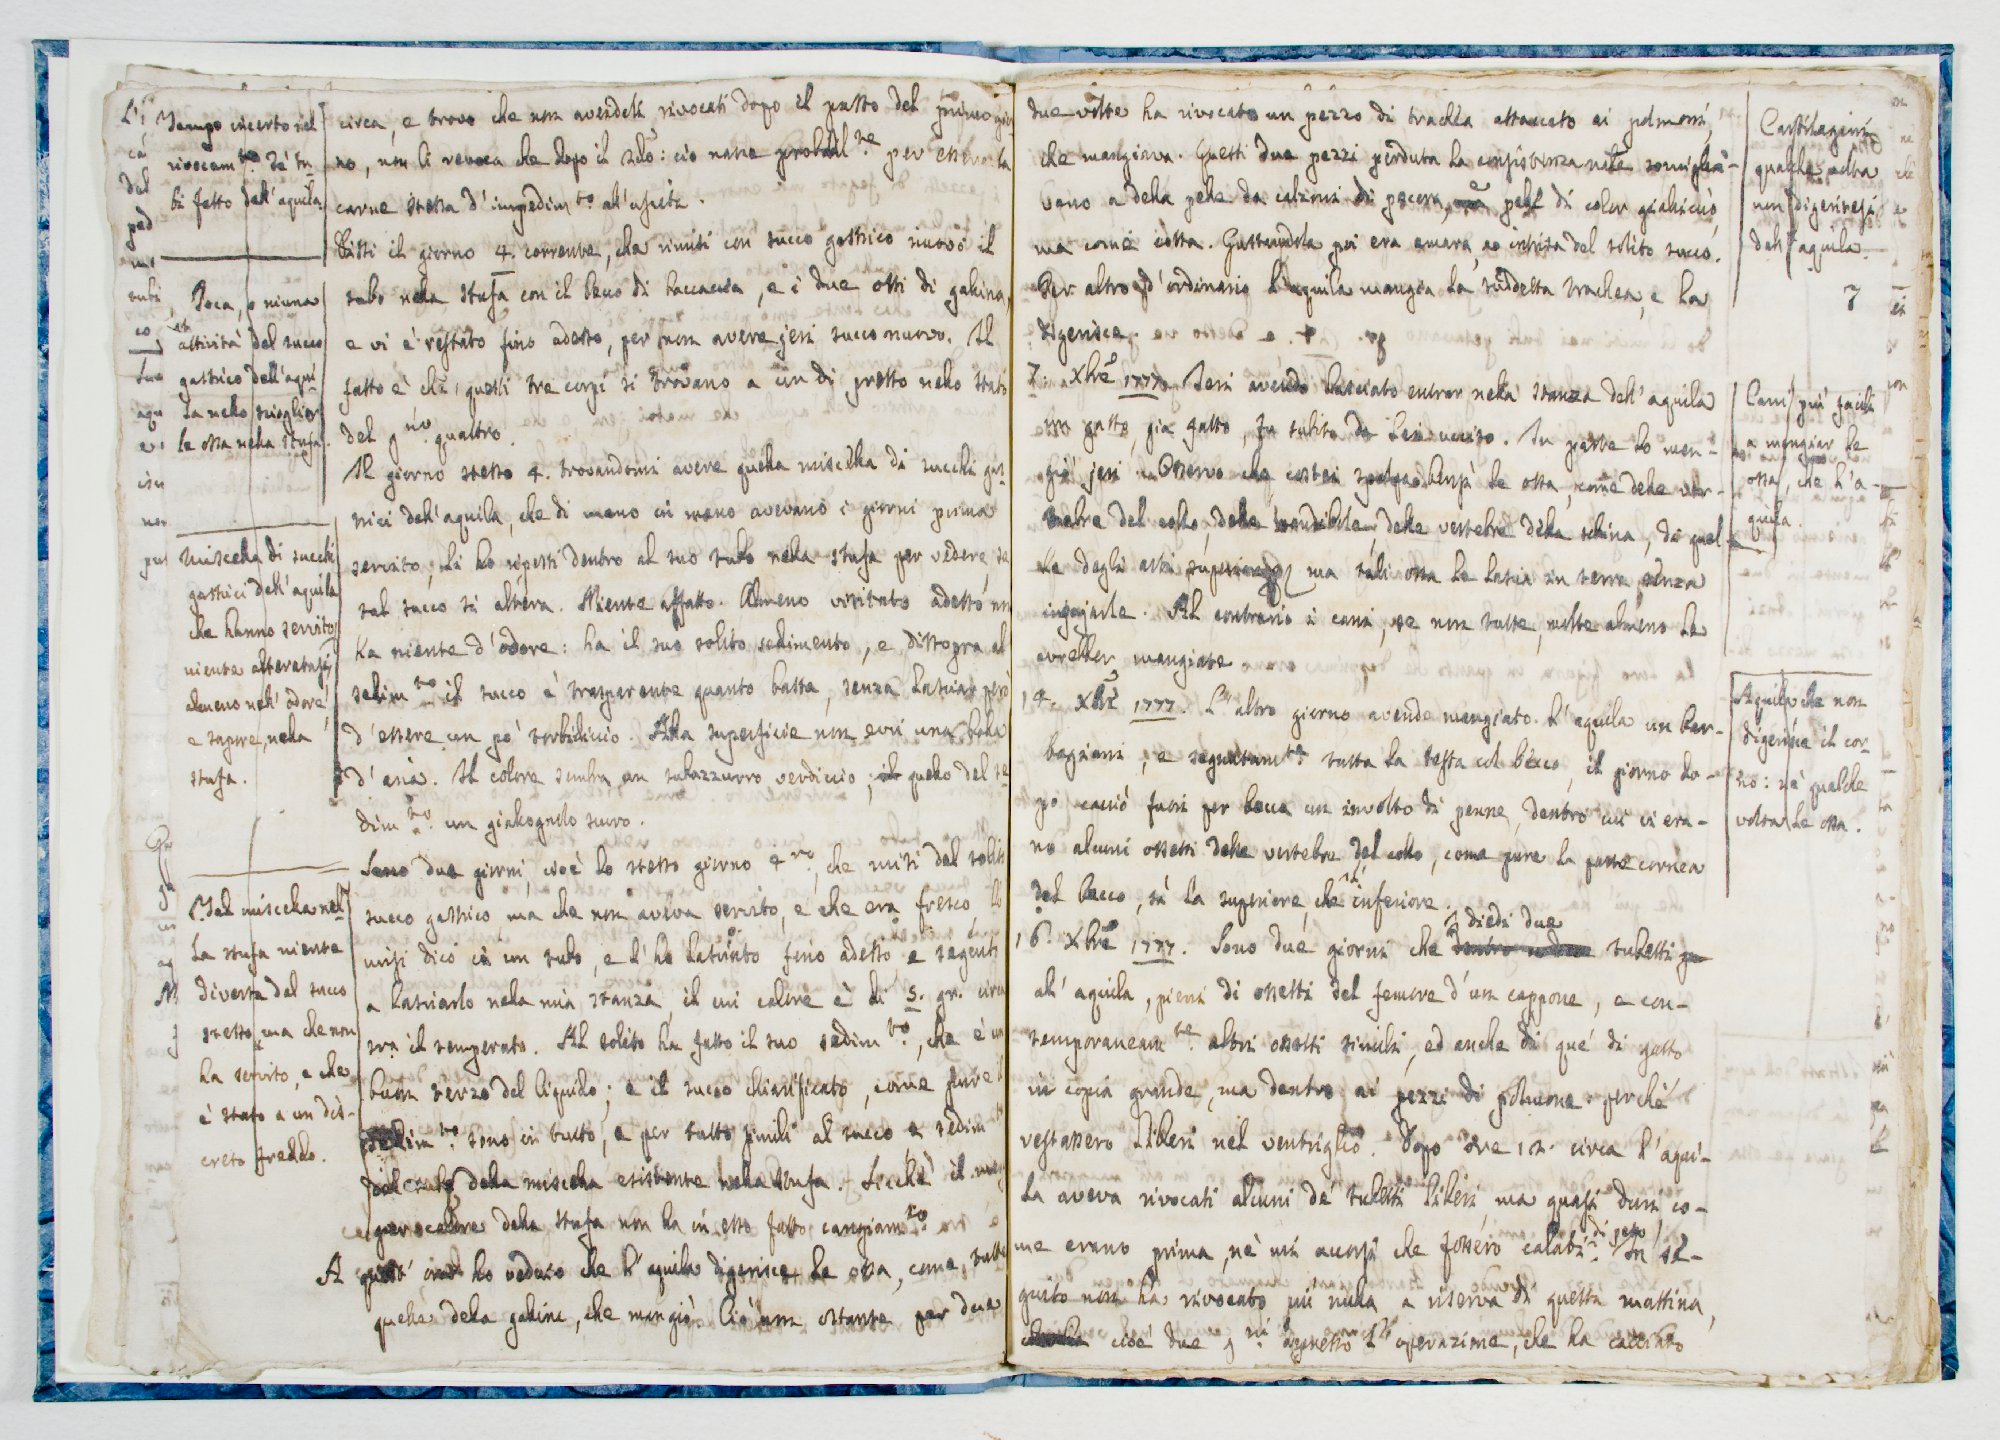 Tempo incerto nel
rivocam.to de' tu-
bi fatto dall'aquila.
Poca, o niuna
attività del succo
gastrico dell'aqui-
la nello scioglier
le ossa nella stufa.
Miscela di succhi
gastrici dell'aquila
che hanno servito
niente alteratasi
almeno nell'odore,
e sapore, nella
stufa.
Tal miscela nel-
la stufa niente
diversa dal succo
stesso, ma che non
ha servito, e che
è stato a un dis-
creto freddo.
circa, e trovo che non avendoli rivocati dopo il pasto del primo gior
no, non li revoca che dopo il 2do: ciò nasce probabil.te per essere la
carne stessa d'impedim.to all'uscita.
Dissi il giorno 4. corrente, che rimisi con succo gastrico nuovo il
tubo nella stufa con il becco di beccaccia, e i due ossi di gallina,
e vi è restato fino adesso, per non avere jeri succo nuovo. Il
fatto è che questi tre corpi si trovano a un di presso nello stato
del g.no quattro.
Il giorno stesso 4. trovandomi avere quella miscella di succhi gas-
trici dell'aquila, che di mano in mano avevano i giorni prima
servito, li ho riposti dentro al suo tubo nella stufa per vedere, se
tal succo si altera. Niente affatto. Almeno visitato adesso non
ha niente d'odore: ha il suo solito sedimento, e dissopra al
sedim.to il succo è trasparente quanto basta, senza lasciar però
d'essere un pò torbidiccio. Alla superficie non evvi una bolla
d'aria. Il colore sembra un subazzurro verdiccio; quello del se
dim.to un giallognolo scuro.
Sono due giorni, cioè lo stesso giorno 4.to, che misi del solito
succo gastrico, ma che non aveva servito, e che era fresco, lo
misi dico in un tubo, e l'ho lasciato fino adesso e seguito
a lasciarlo nella mia stanza, il cui calore è di 5. gr. circa
sra il temperato. Al solito ha fatto il suo sedim.to, che è un
buon terzo del liquido; e il succo chiarificato, come pure il
sedim.to sono in tutto, e per tutto simili al succo e sedim.to
del tubo della miscella esistente nella stufa. Sicchè il mag
gior calore della stufa non ha in esso fatto cangiam.to
A quest'ora ho veduto che l'aquila digerisce le ossa, come tutte
quelle della gallina, che mangiò. Ciò non ostante per due
due volte ha rivocato un pezzo di trachea attaccato ai polmoni,
che mangiava. Questi due pezzi perduta la consistenza nelle somiglia-
vano a della pelle da calzoni di pecora, pelle di color gialliccio,
ma come cotta. Gustandola poi era amara, ed intrisa del solito succo.
Per altro d'ordinario l'aquila mangia la suddetta trachea, e la
digerisce.
7. Xbre 1777. Jeri avendo lasciato entrar nella stanza dell'aquila
un gatto, già fatto, fu subito da lei ucciso. In parte lo man-
giò jeri. Osservo che costei spolpa bensì le ossa, come delle ver-
tebre del collo, delle mandibole, delle vertebre della schina, di quel-
le degli arti superiori, ma tali ossa le lascia in terra senza
ingojarle. Al contrario i cani, se non tutte, molte almeno le
avrebber mangiate.
14. Xbre 1777. L'altro giorno avendo mangiato l'aquila un bar-
bagianni, e segnatam.te tutta la testa col becco, il giorno do-
po cacciò fuori per bocca un involto di penne, dentro cui vi era-
no alcuni ossetti delle vertebre del collo, come pure la parte cornea
del becco, sì la superiore, che l'inferiore.
16. Xbre 1777. Sono due giorni che diedi due tubetti
all'aquila, pieni di ossetti del femore d'un cappone, e con-
temporaneam.te altri ossetti simili, ed anche di que' di gatto
in copia grande, ma dentro ai pezzi di polmone perchè
restassero liberi nel ventriglio. Dopo ore 12. circa l'aqui-
la aveva rivocati alcuni de' tubetti liberi ma quasi duri co-
me erano prima, nè mi accorsi che fossero calati di peso. In se-
guito non ha rivocato più nulla a riserva di questa mattina,
cioè due g.ni appresso l'operazione, che ha cacciato
Cartilagini
qualche volta
non digeritesi
dall'aquila.
7
Cani più facili
a mangiar le
ossa, che l'a-
quila.
Aquila che non
digerisce il cor-
no: nè qualche
volta le ossa.